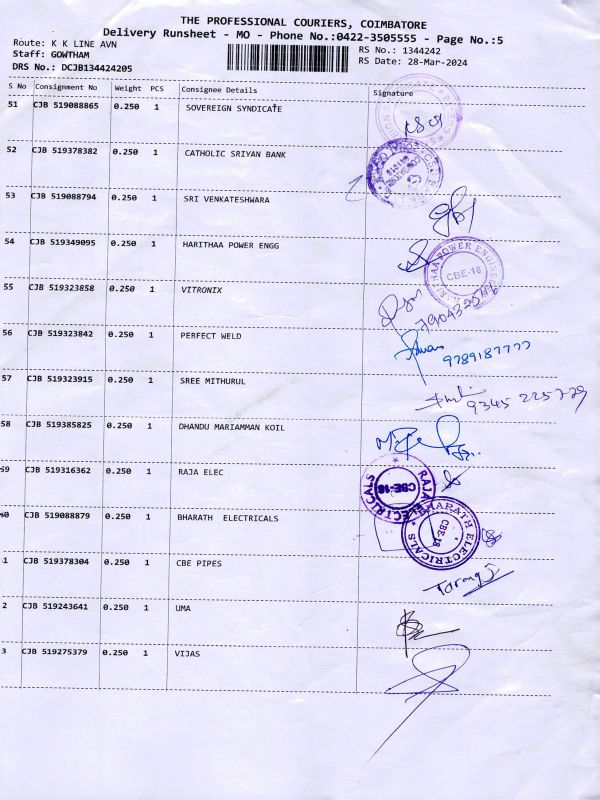 THE PROFESSIONAL COURIERS, COIMBATORE
Delivery Runsheet - MO - Phone No.:0422-3505555 - Page No.:5
Route: K K LINE AVN
RS No.: 1344242
Staff: GOWTHAM
RS Date: 28-Mar-2024
DRS No.: DCJB134424205
S No Consignment No Weight PCS Consignee Details Signature
51 CJB 519088865 0.250 1 SOVEREIGN SYNDICATE
52 CJB 519378382 0.250 1 CATHOLIC SRIYAN BANK
53 CJB 519088794 0.250 1 SRI VENKATESHWARA
54 CJB 519349095 0.250 1 HARITHAA POWER ENGG
HARITHAA POWER ENGINEERS
CBE-18
55 CJB 519323858 0.250 1 VITRONIX
56 CJB 519323842 0.250 1 PERFECT WELD
9789187777
57 CJB 519323915 0.250 1 SREE MITHURUL
9345 225729
58 CJB 519385825 0.250 1 DHANDU MARIAMMAN KOIL
59 CJB 519316362 0.250 1 RAJA ELEC
RAJA ELECTRICALS
CBE-18
60 CJB 519088879 0.250 1 BHARATH ELECTRICALS
BHARATH ELECTRICALS
CBE-18
1 CJB 519378304 0.250 1 CBE PIPES
2 CJB 519243641 0.250 1 UMA
3 CJB 519275379 0.250 1 VIJAS